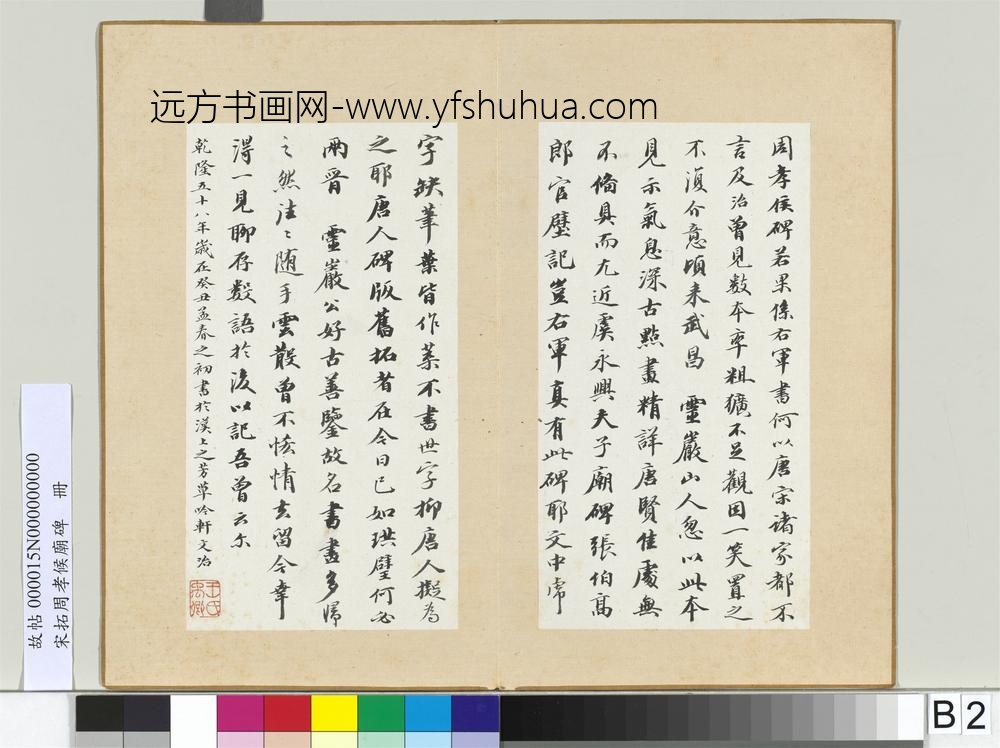 远方书画网-www.yfshuhua.com
周孝侯碑若果係右軍書何以唐宋諸家都不
言及治曾見數本率粗獷不足觀因一笑置之
不復介意頃来武昌 靈巖山人忽以此本
見示氣息深古點畫精詳唐賢佳處無
不備具而尤近虞永興夫子廟碑張伯高
郎官壁記豈右軍真有此碑耶文中虎
字缺筆葉皆作菜不書世字抑唐人擬為
之耶唐人碑版舊拓者在今日已如珙璧何必
兩晉 靈巖公好古善鑒故名書畫多歸
之然往々随手雲散曾不恡情去留今幸
得一見聊存數語於後以記吾曾云尔
乾隆五十八年歲在癸丑孟春之初書於漢上之芳草吟軒文治
王氏禹卿
故帖 000015N000000000
宋拓周孝候廟碑 冊
B 2